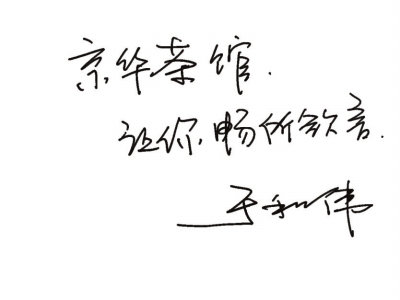 京华茶馆.
让你畅所欲言.
于和伟